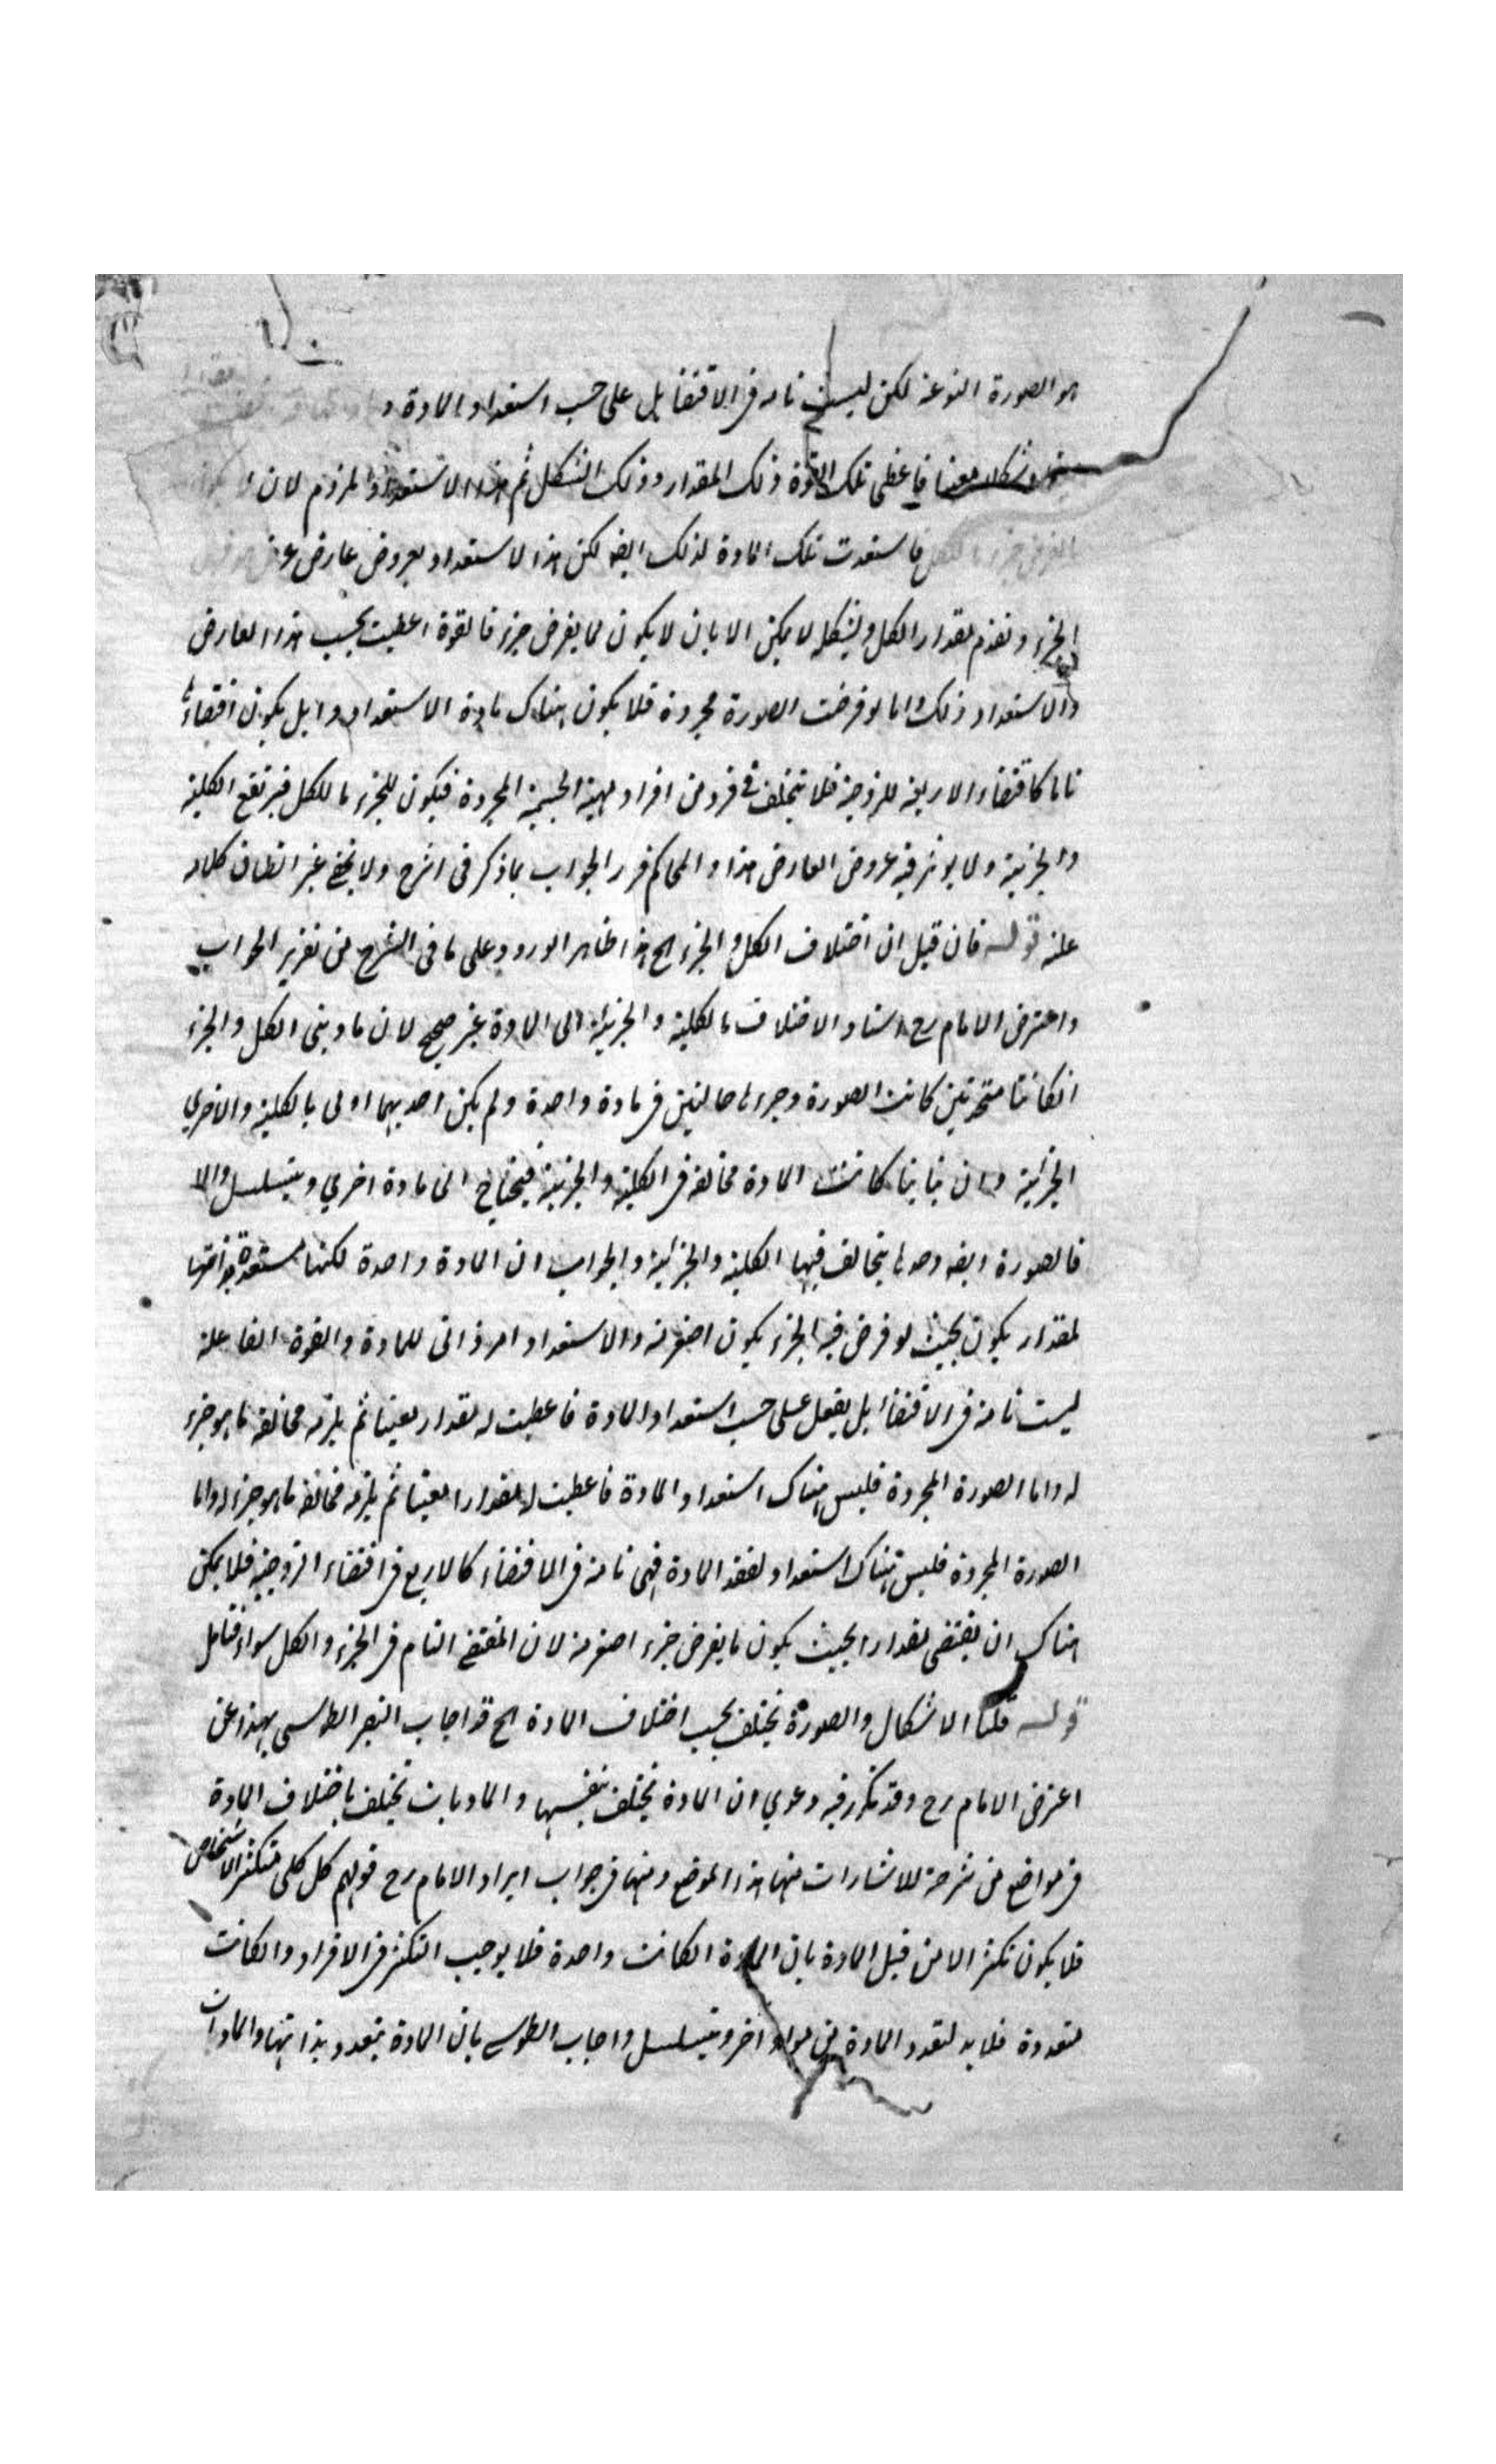 هو الصورة النوعية لكن ليست تامة فى الاقتضا بل على حسب استعداد المادة و
وشكلا معينا فاعطى تلك القوة ذلك المقدار وذلك الشكل ثم هذا الاستعداد لان
فاستعدت تلك المادة لذلك ايضه لكن هذا لاستعداد بعروض عارض
الجزء وتقدم مقدار الكل وبشكله لا يمكن الا بان لا يكون لما يفرض جزء فالقوة اعطيت بحسب هذا العارض
والاستعداد ذلك واما لو فرضت الصورة مجردة فلا يكون هناك مادة الاستعداد بل يكون اقتضاءً
تاما كاقتضاء الاربعة للزوجية فلا يتخلف فى فرد من افراد مهية الجسمية المجردة فيكون للجزء ما للكل فيرتفع الكلية
والجزئية ولا يوثر فيه عروض العارض هذا والمحاكم قرر الجواب بما ذكر فى الشرح ولا يخفى غير انطباق كلامه
عليه قوله فان قيل ان اختلاف الكل والجزء الخ هذا ظاهر الورود على ما فى الشرح من تقرير الجواب
واعترض الامام رح اسناد الاختلاف بالكلية والجزئية الى المادة غير صحيح لان مادتى الكل والجزء
انكانتا متحدتين كانت الصورة وجزءها حالتين فى مادة واحدة ولم يكن احديهما اولى بالكلية والاخرى
الجزئية وان تباينا كانت المادة مخالفة فى الكلية والجزئية فيحتاج الى مادة اخرى ويتسلسل والا
فالصورة ايضه وحدها يتخالف فيها الكلية والجزئية والجواب ان المادة واحدة لكنها مستعدة بذاتها
لمقدار يكون بحيث لو فرض فيه الجزء يكون اصغر منه والاستعداد امر ذاتى للمادة والقوة الفاعلة
ليست تامة فى الاقتضاء بل يفعل على حسب استعداد المادة فاعطيت له مقدار معينا ثم يلزمه مخالفة ما هو جزء
له واما الصورة المجردة فليس هناك استعداد المادة فاعطيت له مقدارا معينا ثم يلزمه مخالفة ما هو جزء له واما
الصورة المجردة فليس هناك استعداد لفقد المادة فهى تامة فى الاقتضاء كالاربع فى اقتضاء الزوجية فلا يمكن
هناك ان يقتضى مقدارا بحيث يكون ما يفرض جزء اصغر منه لان المقتضى التام فى الجزء والكل سواء فتامل
قوله قلنا الاشكال والصورة تختلف بحسب اختلاف المادة الخ قد اجاب النصير الطوسى بهذا عن
اعتراض الامام رح وقد تكرر فيه دعوى ان المادة تختلف بنفسها والماديات تختلف باختلاف المادة
فى مواضع من شرحه للاشارات منها هذا الموضع ومنها فى جواب ايراد الامام رح قولهم كل كلى متكثر الاشخاص
فلا يكون تكثر الا من قبل المادة بان المادة انكانت واحدة فلا يوجب التكثر فى الافراد وانكانت
متعددة فلا بد لتعدد المادة من مواد اخر ويتسلسل واجاب الطوسى بان المادة يتعدد بذاتها والماديات